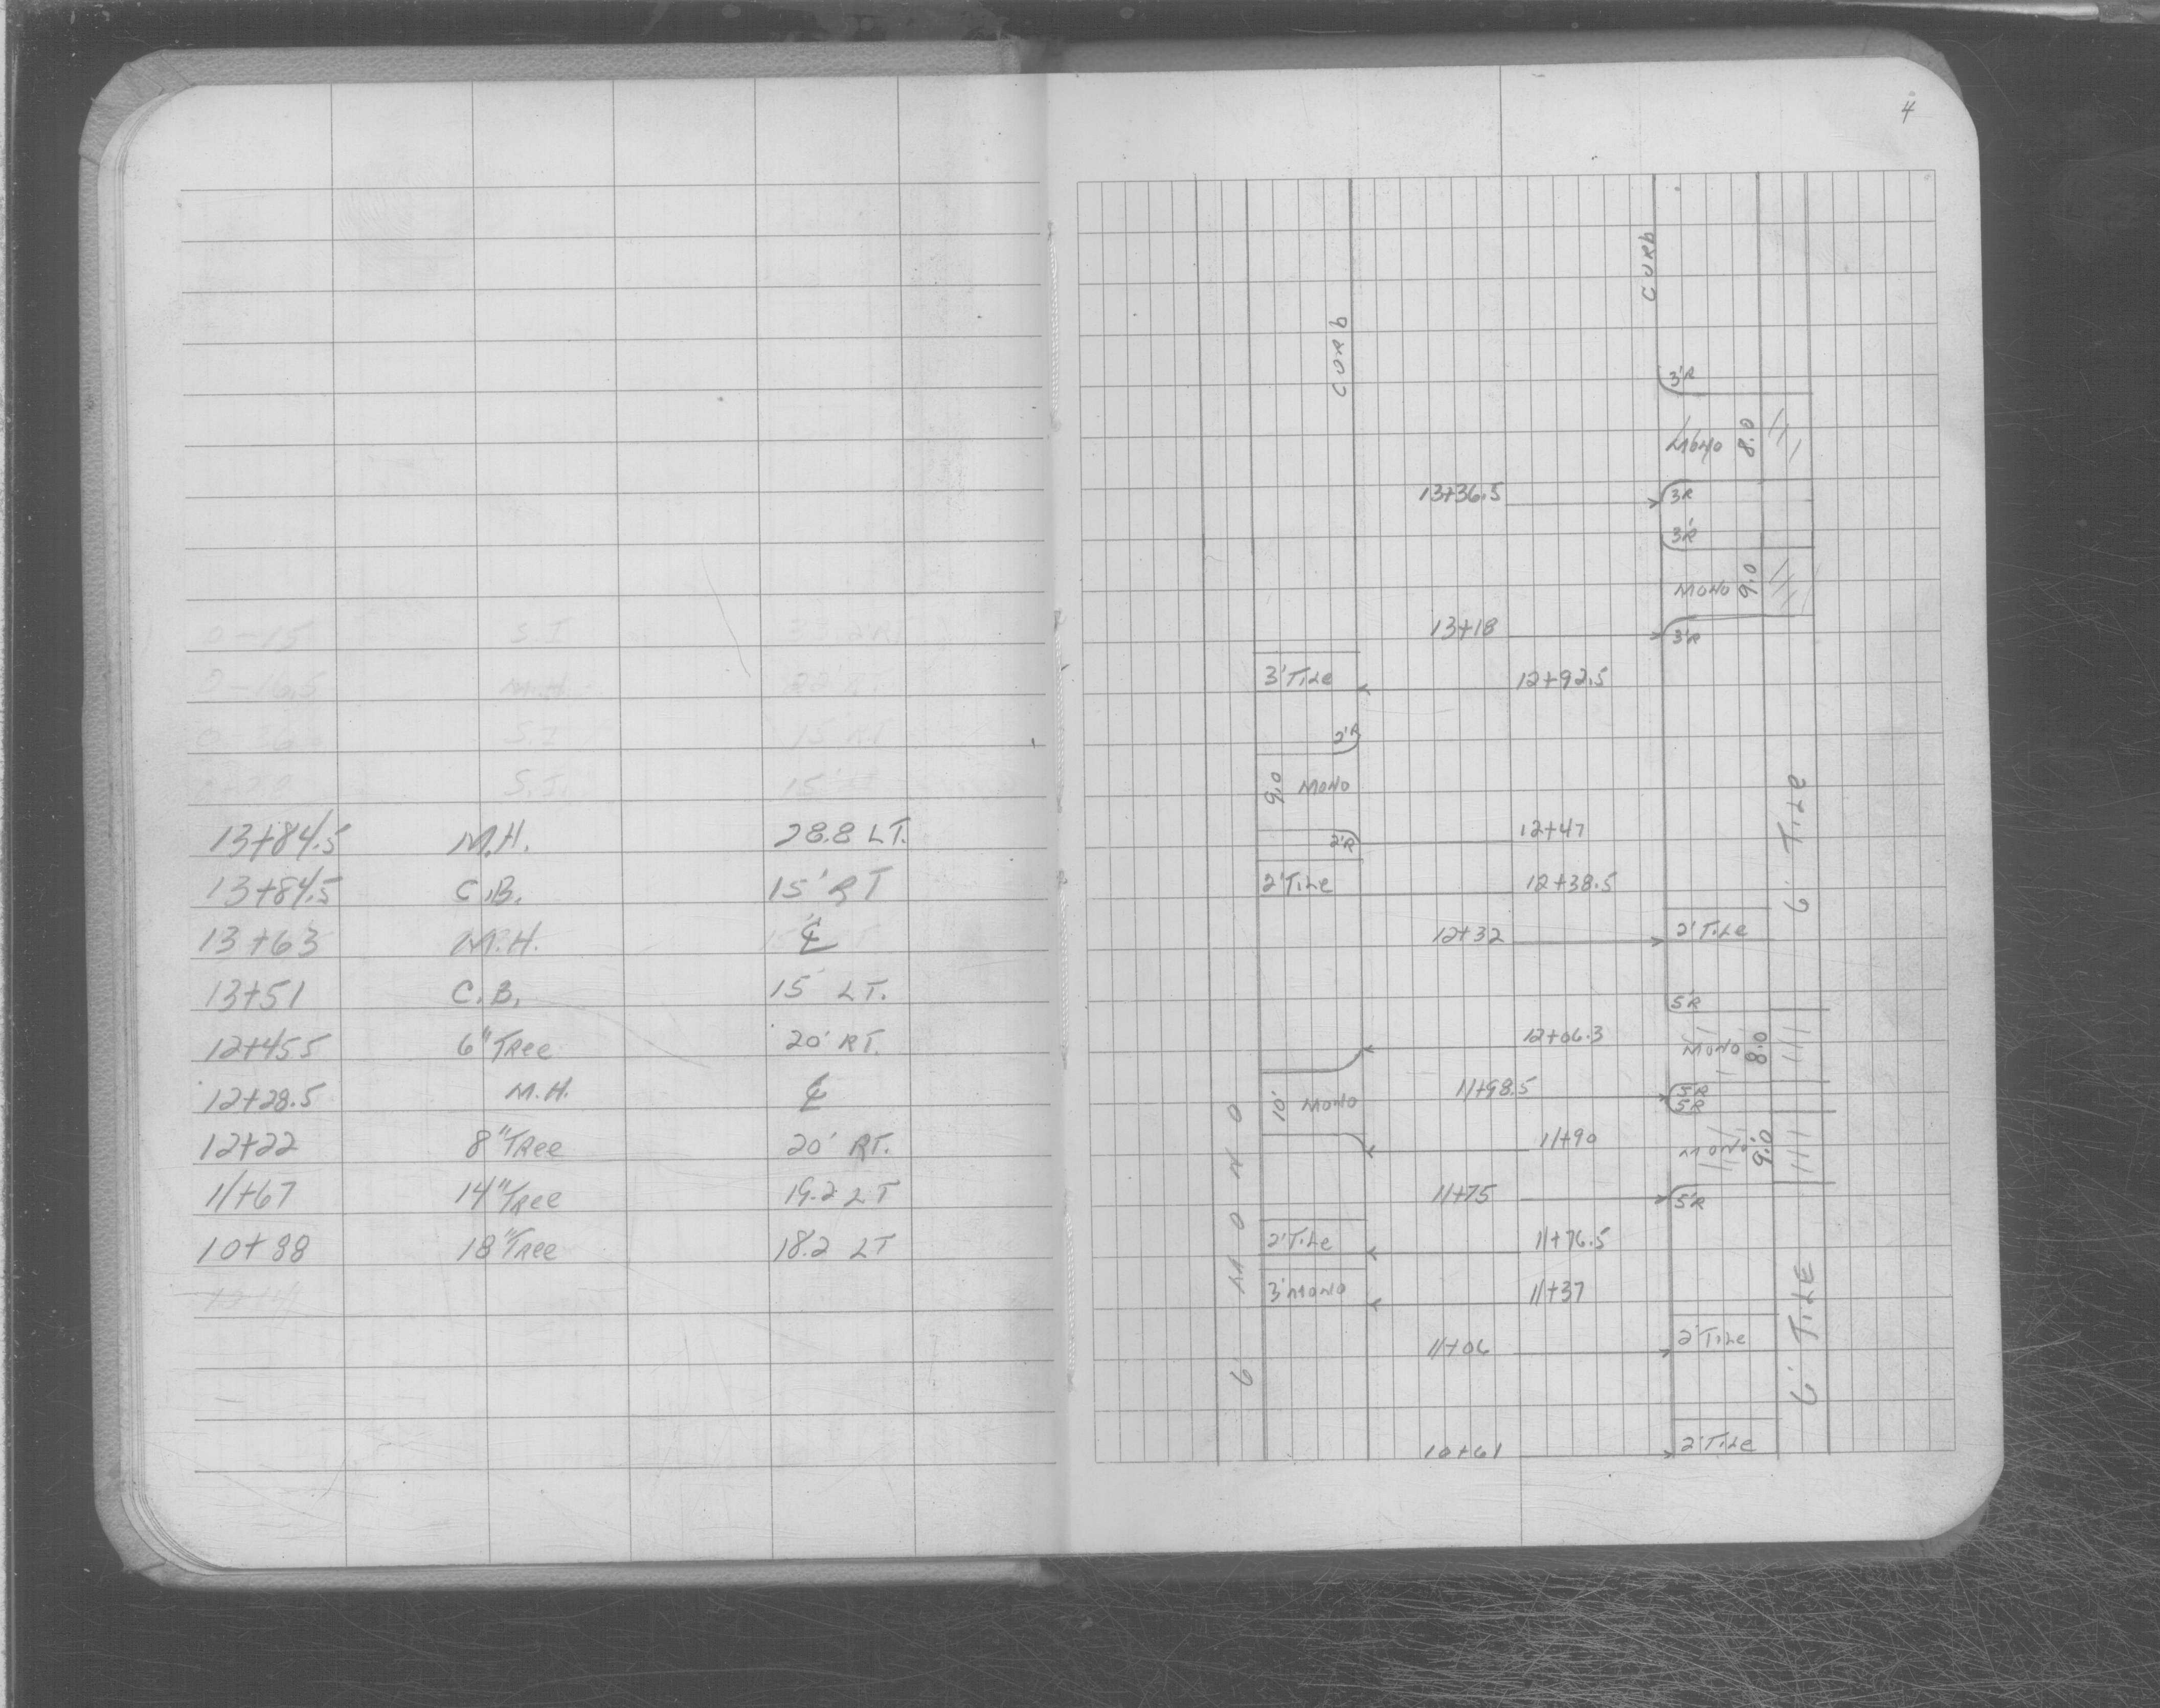 0-15 S.I
0-16.5 M.H.
0-36 S.I 15' RT
S.I. 15'
13+84.5 M.H. 28.8 LT.
13+84.5 C.B. 15' RT
13+63 M.H. ℄
13+51 C.B. 15' LT.
12+45.5 6" Tree 20' RT.
12+28.5 M.H. ℄
12+22 8" Tree 20' RT.
11+67 14" Tree 19.2 LT
10+88 18" Tree 18.2 LT
4
CURB
CURB
3'R
MONO 8.0
13+36.5 3R
3'R
MONO 9.0
13+18 3'R
3' TILE 12+92.5
2'R
9.0 MONO
6' TILE
2'R 12+47
2' TILE 12+38.5
12+32 2' TILE
5'R
12+06.3 MONO 8.0
11+98.5 5'R
10' MONO 5'R
11+90 MONO 9.0
11+75 5'R
2' TILE 11+76.5
6 MONO
3' MONO 11+37
6' TILE
11+06 2' TILE
10+61 2' TILE